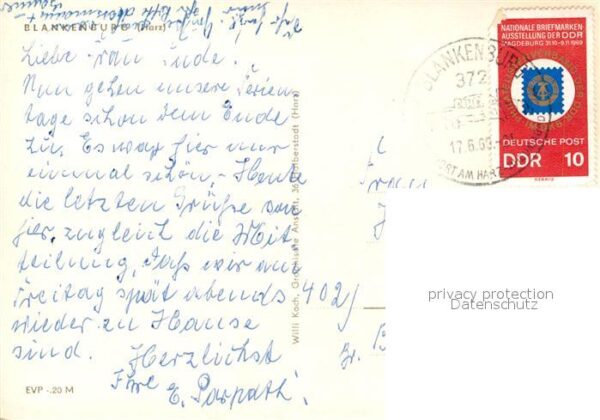 BLANKENBURG (Harz)
Liebe Frau Ende!
Nun gehen unsere Ferien-
tage schon dem Ende
zu. Es war hier nur
einmal schön, - Heute
die letzten Grüße von
hier, zugleich die Mit-
teilung, daß wir am
Freitag spät abends
wieder zu Hause
sind. Herzlichst
Ihre
E.
EVP -.20 M
Willi Koch, Graphische Anstalt, 36 Halberstadt (Harz)
402/
NATIONALE BRIEFMARKEN
AUSSTELLUNG DER DDR
MAGDEBURG 31.10.-9.11.1969
DEUTSCHE POST
DDR 10
BLANKENBURG
372
17.6.69
ORT AM HARZ
privacy protection
Datenschutz